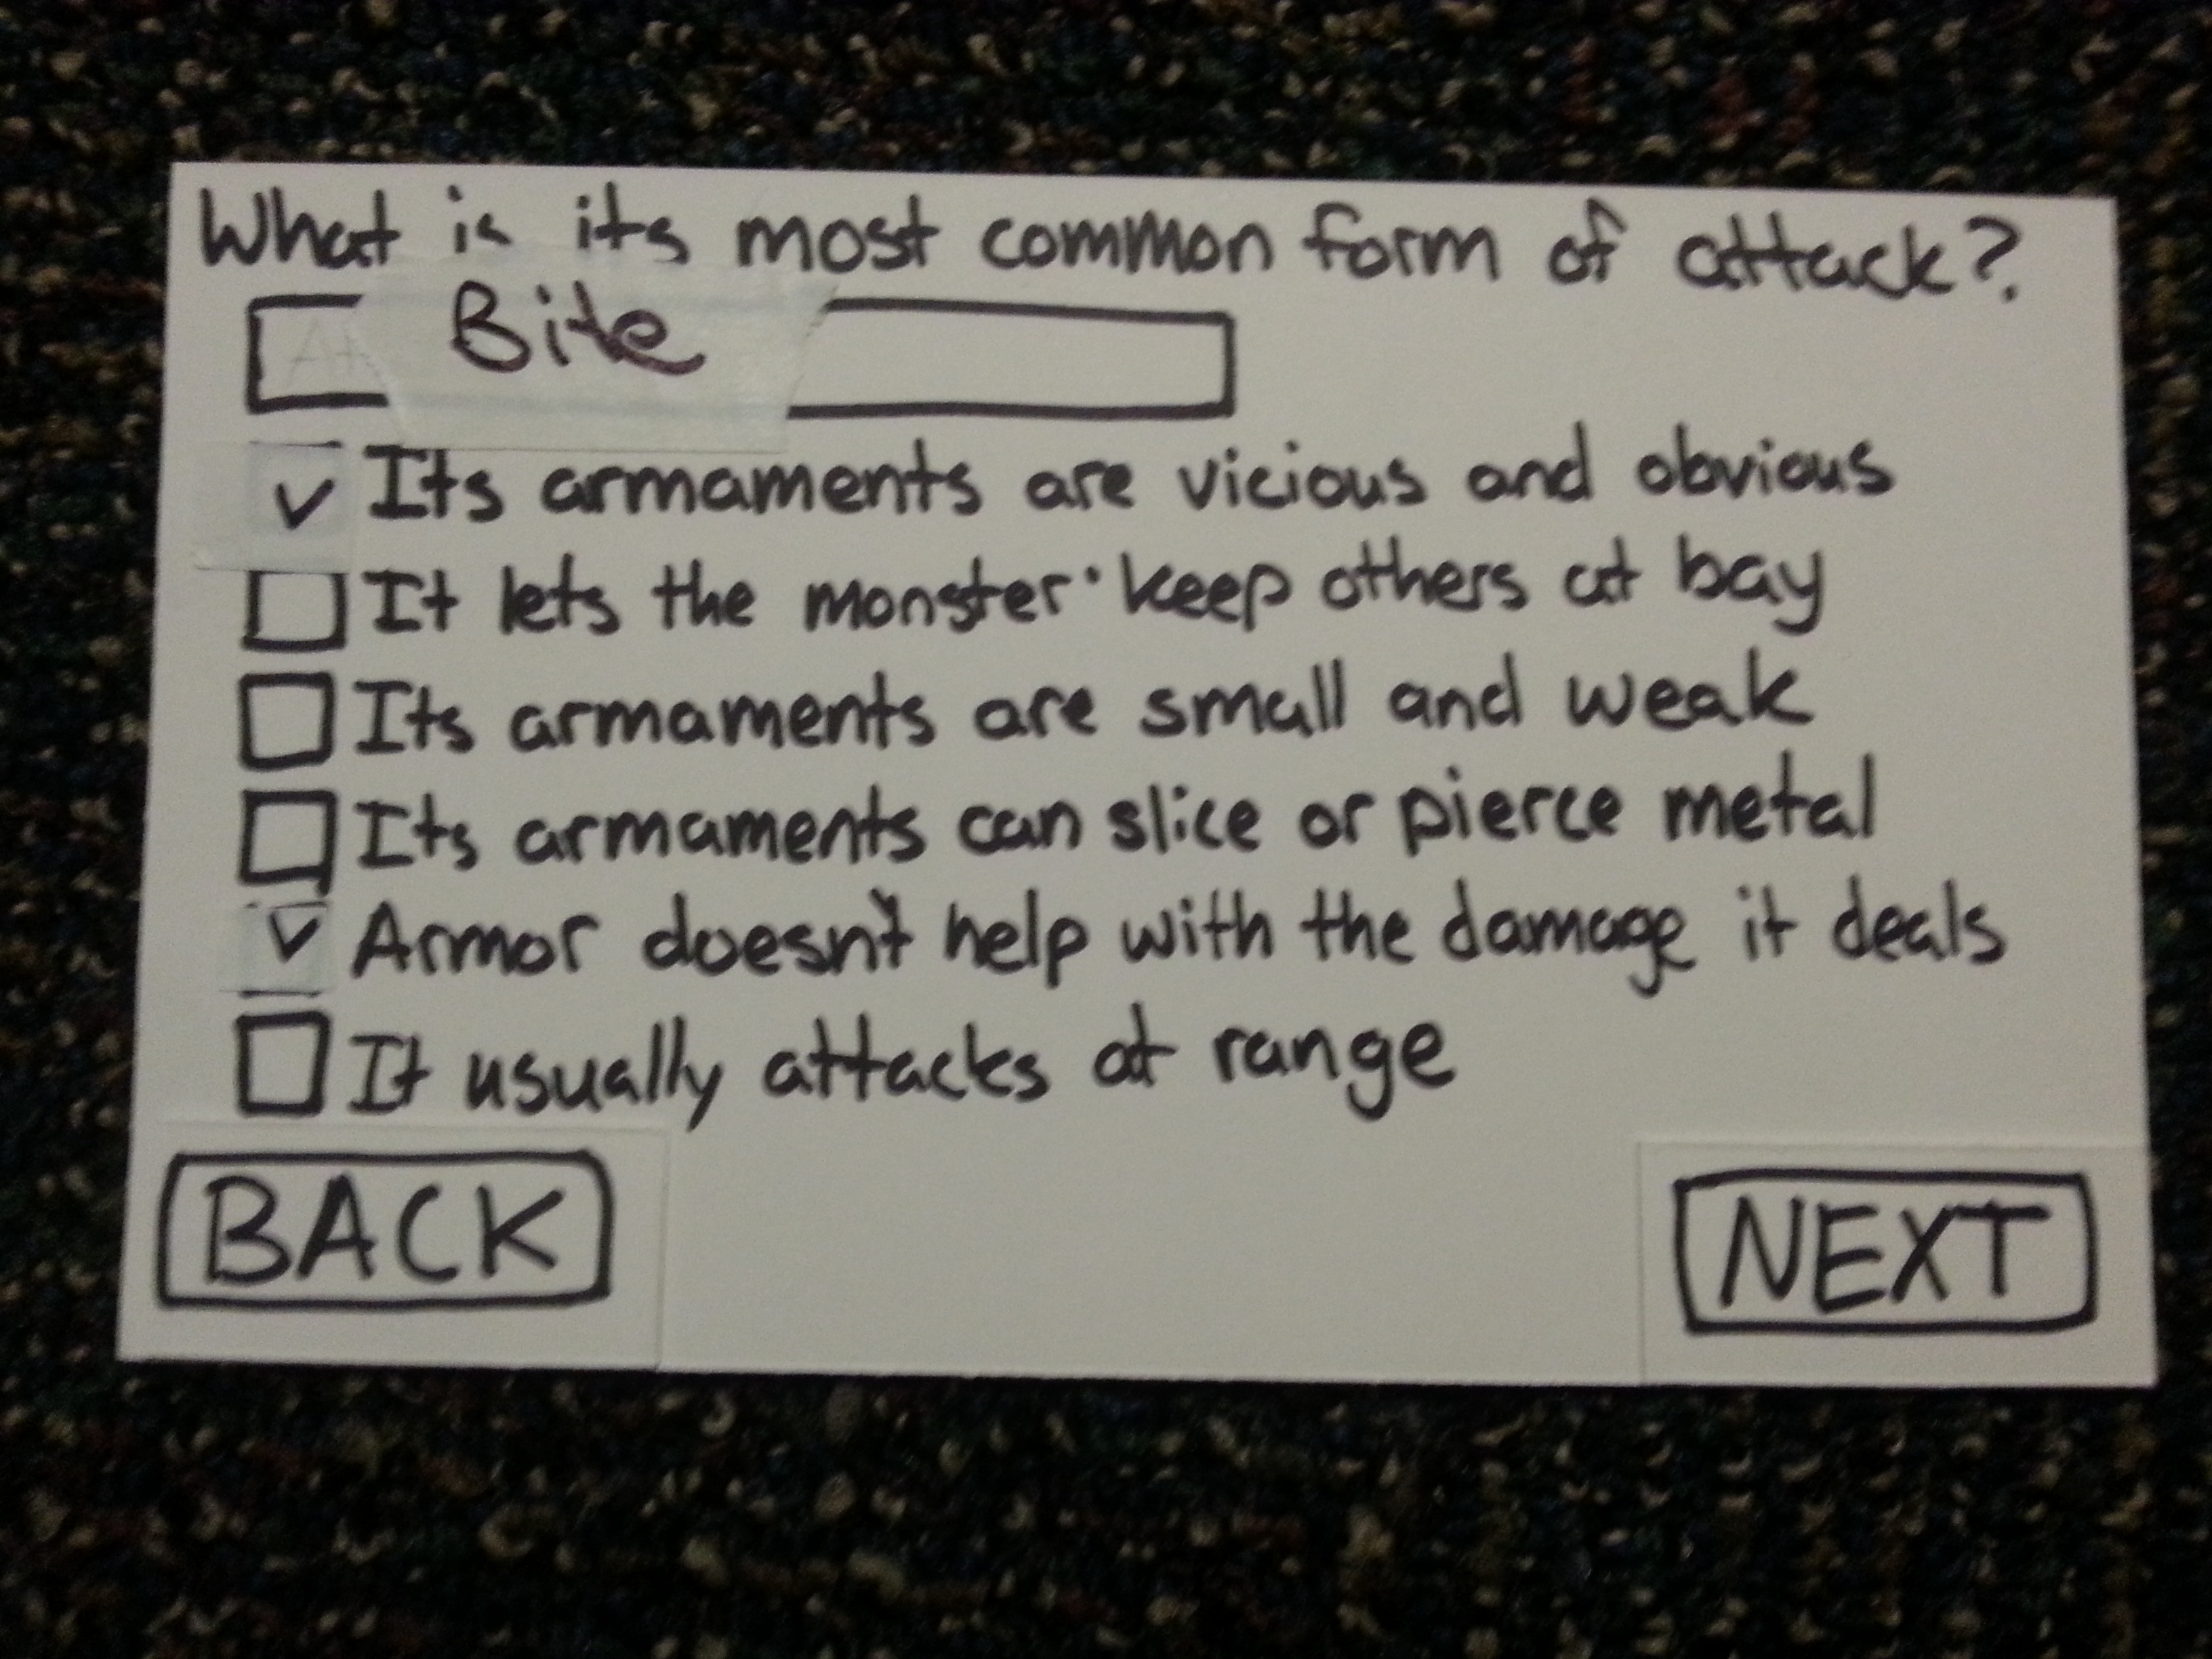 What is its most common form of attack?
Bite
Its armaments are vicious and obvious
It lets the monster keep others at bay
Its armaments are small and weak
Its armaments can slice or pierce metal
Armor doesn't help with the damage it deals
It usually attacks at range
BACK
NEXT